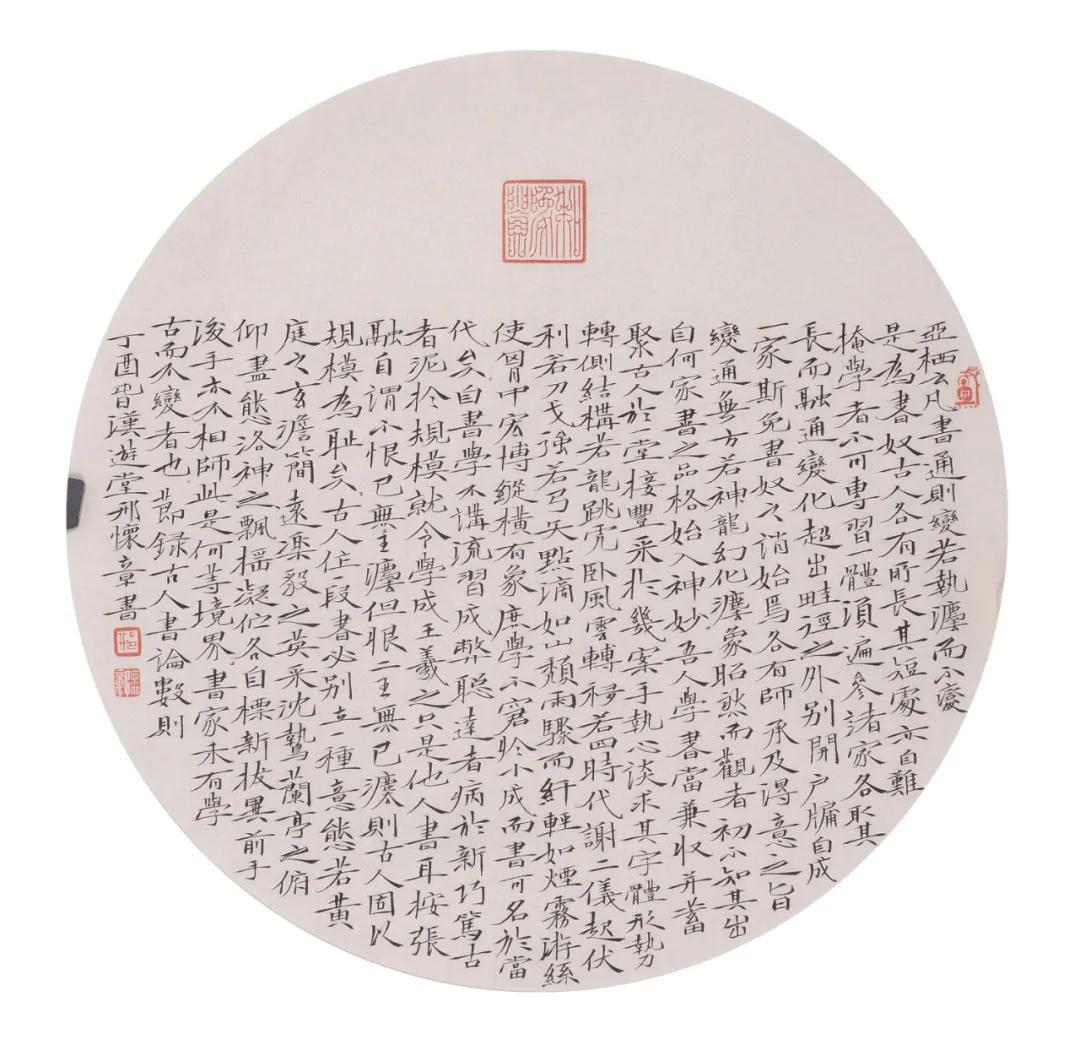 亞栖云凡書通則變若執灋而不變
是為書奴古人各有所長其短處亦自難
掩學者不可專習一體須遍參諸家各取其
長而融通變化超出畦逕之外別開户牖自成
一家斯免書奴之誚始焉各有師承及得意之旨
變通無方若神龍幻化灋象昭然而觀者初不知其出
自何家書之品格始入神妙吾人學書當兼收并蓄
聚古人於堂接豐采於幾案手執心談求其字體形勢
轉側結構若龍跳虎卧風雲轉移若四時代謝二儀起伏
利若刀戈強若弓矢點滴如山頹雨驟而纤輕如煙霧游絲
使胷中宏博縱橫有象庶學不窘於小成而書可名於當
代矣自書學不講流習成弊聰達者病於新巧篤古
者泥於規模就令學成王羲之只是他人書耳按張
融自謂不恨己無二王灋但恨二王無己灋則古人固以
規模為耻矣古人作一段書必別立一種意態若黄
庭之玄澹簡遠凜毅之英采沈鷙蘭亭之俯
仰盡態洛神之飄摇凝佇各自標新拔異前手
後手亦不相師此是何等境界書家未有學
古而不變者也節録古人書論數則
丁酉 漢遊堂邢懷章書